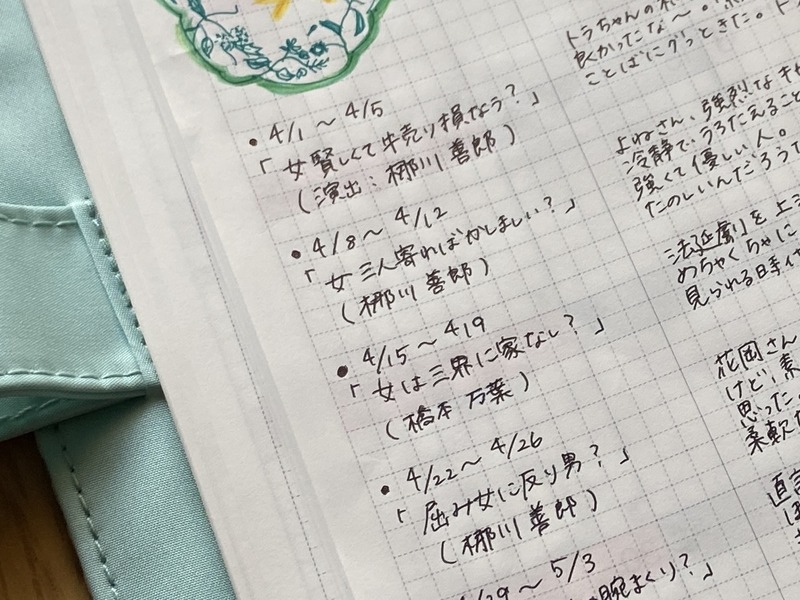 • 4/1 〜 4/5
「女賢しくて牛売り損なう?」
(演出:梛川 善郎)
• 4/8 〜 4/12
「女三人寄ればかしましい?」
(梛川 善郎)
• 4/15 〜 4/19
「女は三界に家なし?」
(橋本 万葉)
• 4/22 〜 4/26
「屈み女に反り男?」
(梛川 善郎)
〜 5/3
腕まくり?」
トラちゃんの
良かったな〜。
ことばにグッときた。
よねさん、強烈なキャ
冷静で、うろたえること
強くて優しい人。
たのしいんだろうな
法廷劇を上
めちゃくちゃに
見られる日
花岡さん
けど、素
思った。
柔軟な
直言